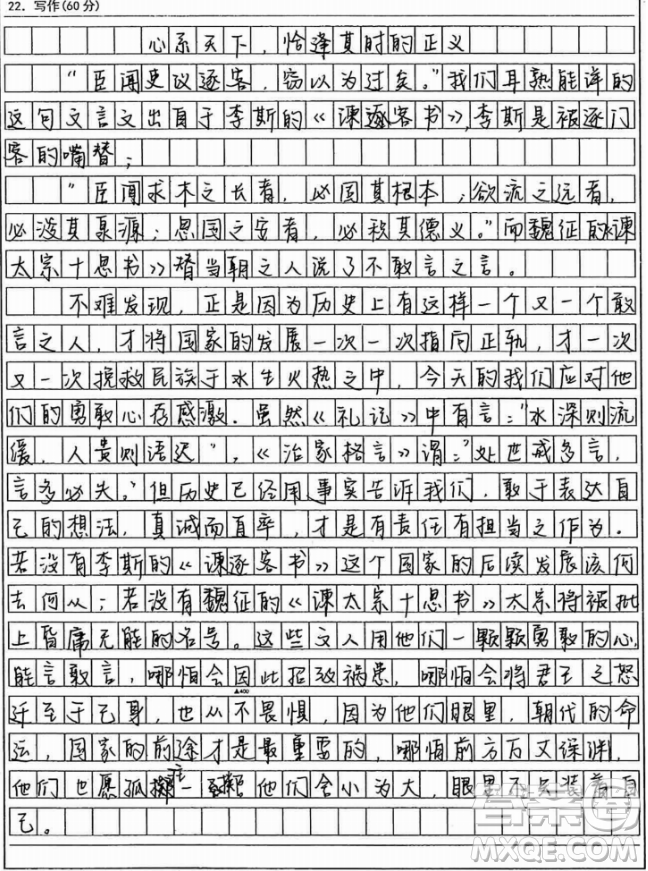 22. 写作(60分)
心系天下，恰逢其时的正义
“臣闻吏议逐客，窃以为过矣。”我们耳熟能详的
这句文言文出自于李斯的《谏逐客书》，李斯是被逐门
客的嘴替；
“臣闻求木之长者，必固其根本；欲流之远者，
必浚其泉源；思国之安者，必积其德义。”而魏征的《谏
太宗十思书》替当朝之人说了不敢言之言。
不难发现，正是因为历史上有这样一个又一个敢
言之人，才将国家的发展一次一次指向正轨，才一次
又一次挽救民族于水生火热之中，今天的我们应对他
们的勇敢心存感激．虽然《礼记》中有言：“水深则流
缓，人贵则语迟”，《治家格言》谓：“处世戒多言，
言多必失。”但历史已经用事实告诉我们，敢于表达自
己的想法，真诚而直率，才是有责任有担当之作为．
若没有李斯的《谏逐客书》这个国家的后续发展该何
去何从；若没有魏征的《谏太宗十思书》太宗将被批
上昏庸无能的名号。这些文人用他们一颗颗勇敢的心，
能言敢言，哪怕会因此招致祸患，哪怕会将君王之怒
▲400
迁至于己身，也从不畏惧，因为他们眼里，朝代的命
运，国家的前途才是最重要的，哪怕前方万丈深渊，
他们也愿孤注一掷 他们舍小为大，眼里不只装着自
己。
答案圈
MXQE.COM